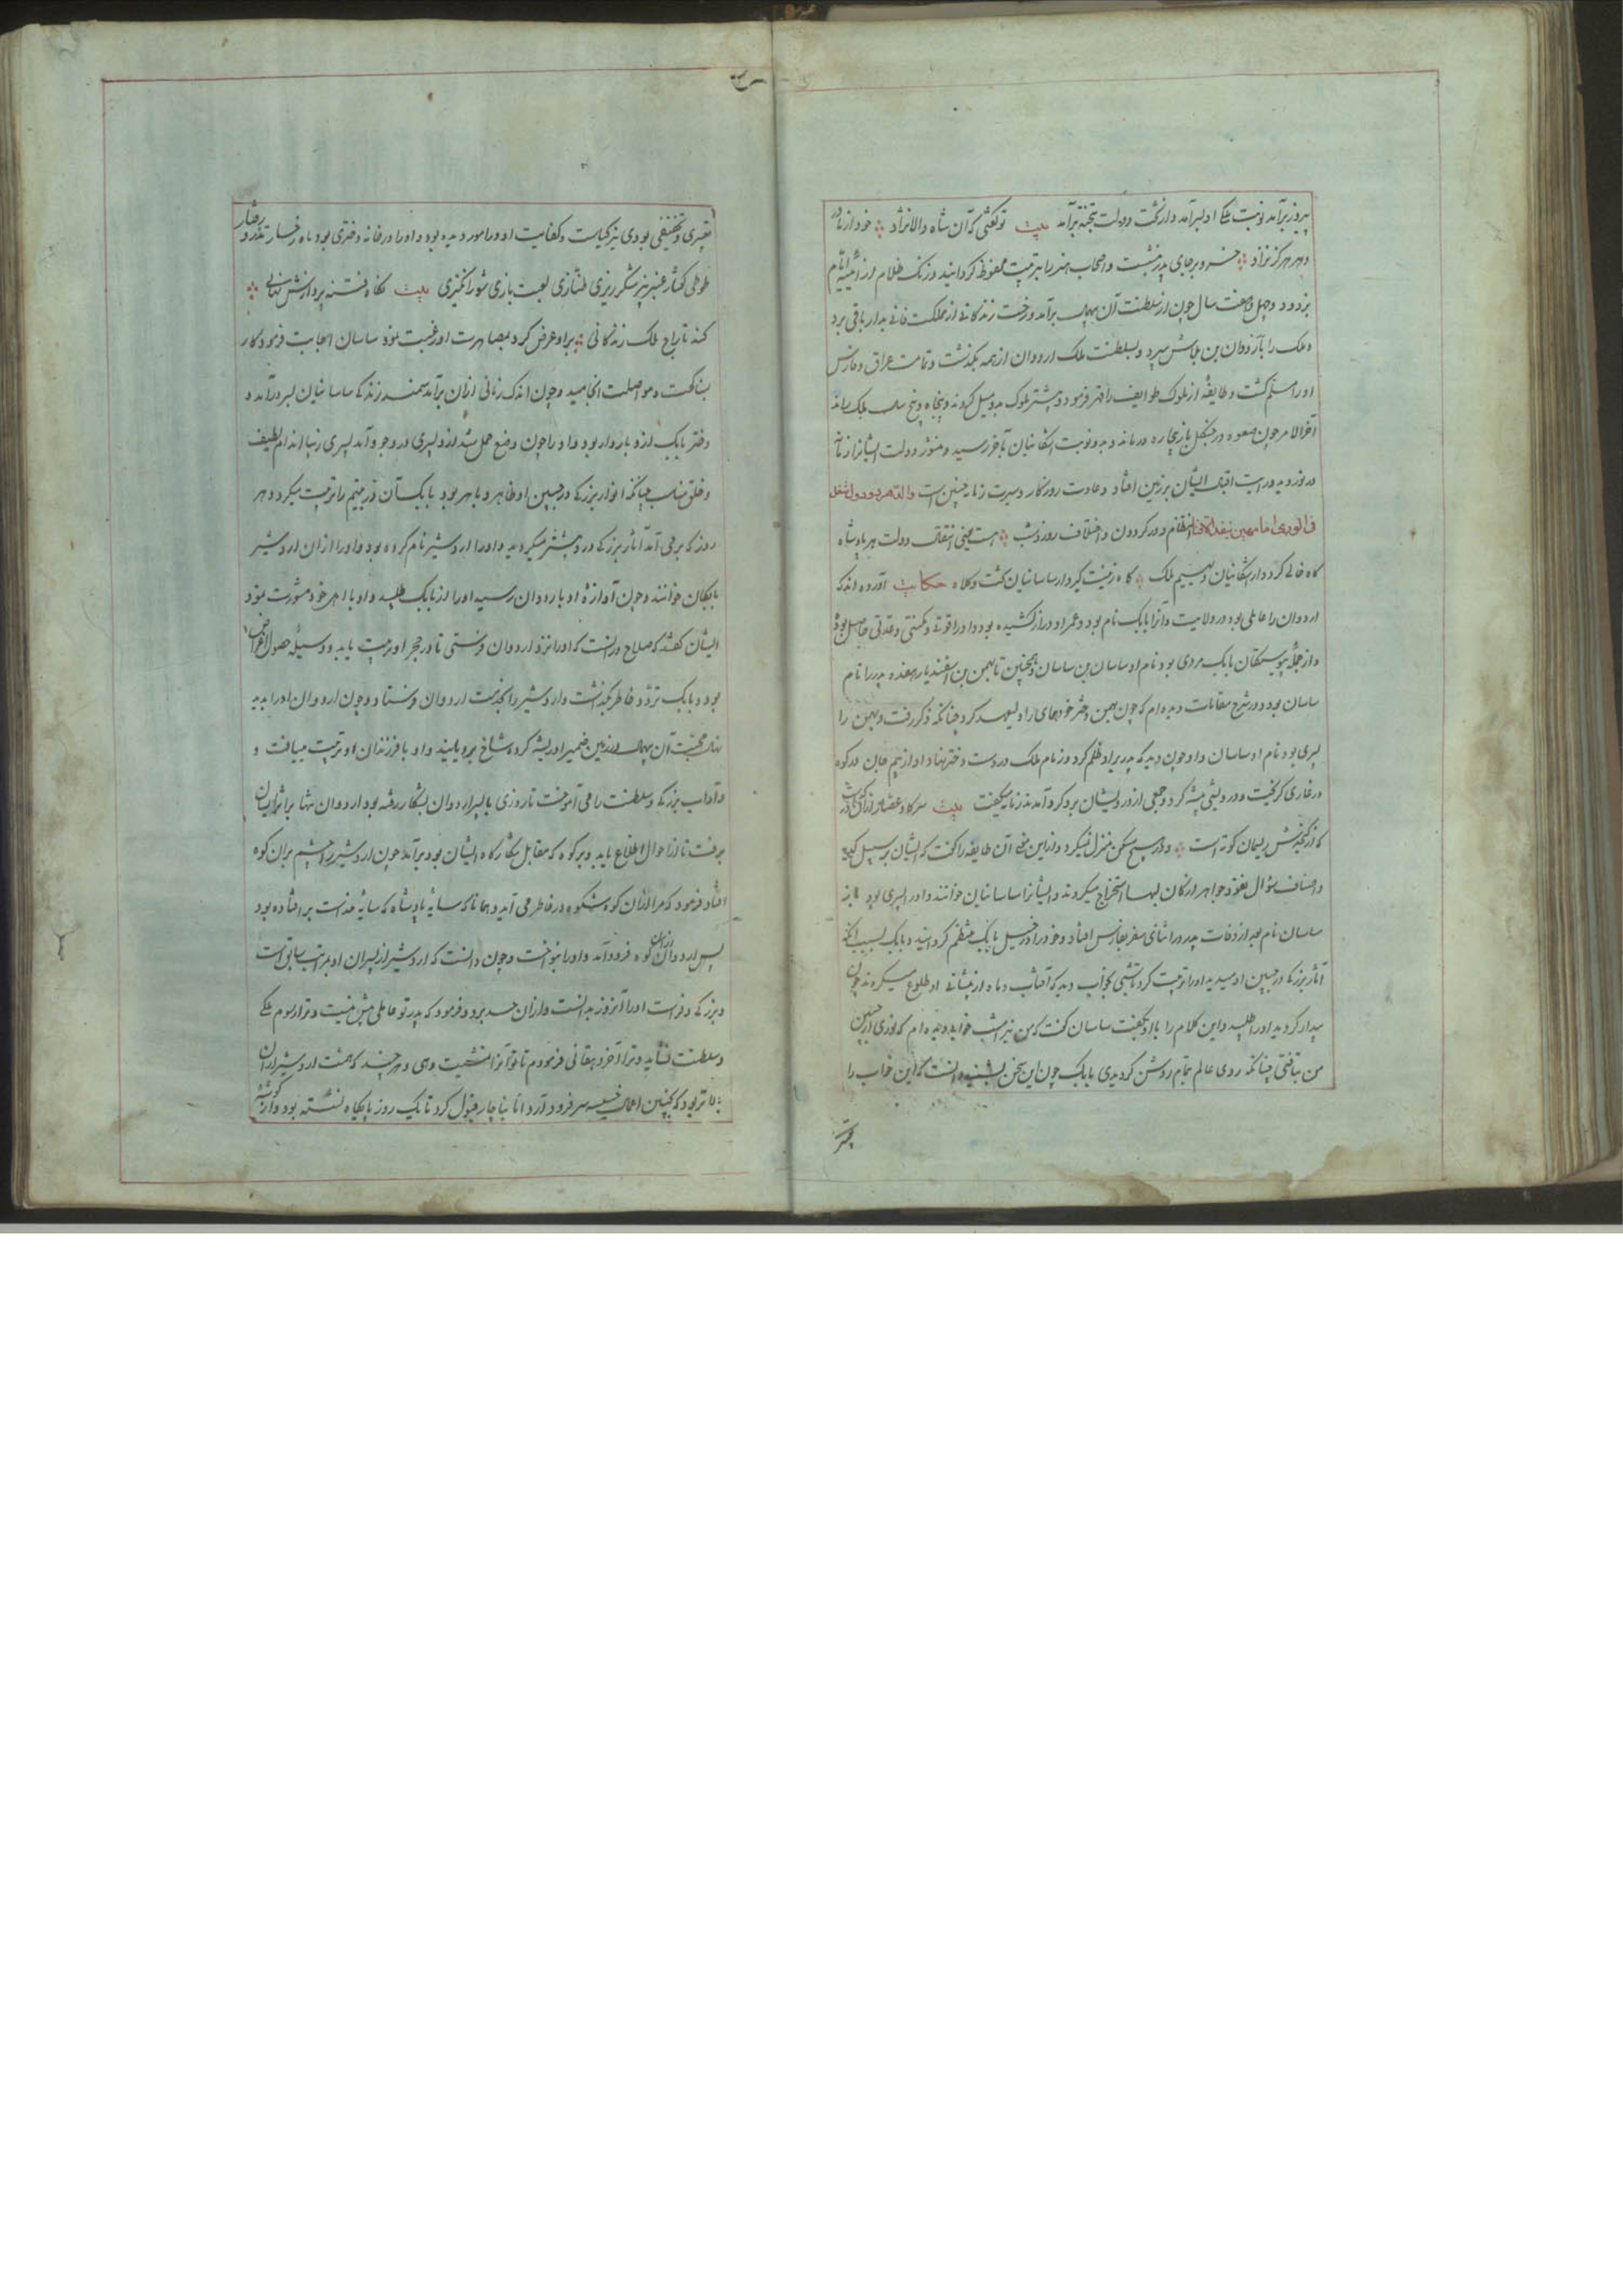 پیروز برآمد نوبت ملکی او بسر آمد و از تخت دولت بتخته برآمد بیت تو گفتی که آن شاه والانژاد خود از مادر
دهر هرگز نزاد خسرو بر جای پدر نشست و اصحاب هنر را بتربیت محفوظ گردانید و زنگ ظلام از آئینه ایام
بزدود و چهل و هفت سال چون از سلطنت آن برآمد و رخت زندگانی از مملکت فانی بدار باقی برد
و ملک را باردوان بن بلاش سپرد و بسلطنت ملک اردوان از همه بگذشت و تمامت عراق و فارس
او را مسلم گشت و طایفه از ملوک طوایف را قهر فرمود و بیشتر ملوک بدو میل کردند و پنجاه و پنج سال ملک براند
آخر الامر چون صعوه در چنگل باز بیچاره درماند و بدو نوبت اشکانیان بآخر رسید و منشور دولت ایشانرا زمانه
در نوردید و رایت اقبال ایشان بر زمین افتاد و عادت روزگار و سیرت زمانه چنین است والدهر ذو دول تنقل
فی الوری ایامهن تنقل الافیا انتظام دور گردون و اختلاف روز و شب هست یعنی انتقال دولت هر پادشاه
گاه خالی کرد دار اشکانیان دیهیم ملک گاه زینت گیرد از ساسانیان تخت و کلاه حکایت آورده اند که
اردوان را عاملی بود در ولایت و آنرا بابک نام بود و عمر او دراز کشیده بود و او را قوتی و مکنتی و عدتی حاصل بود
و از جمله پیوستگان بابک مردی بود نام او ساسان بن ساسان و همچنین تا بهمن بن اسفندیار هفده پدر را نام
ساسان بود و در شرح مقامات دیده ام که چون بهمن دختر خود همای را ولیعهد کرد چنانکه ذکر رفت و بهمن را
پسری بود نام او ساسان و او چون دید که پدر بر او ظلم کرد و زمام ملک در دست دختر نهاد او از بیم جان در کوه
در غاری گریخت و درویشی پیشه کرد و جمعی از درویشان بر او گرد آمدند
که از کنجدش ریسمان کوته است و در هیچ مسکن منزل نمیکرد و ازین معنی آن طایفه را گفت که ایشان بر سبیل
و اصناف سؤال نقود جواهر از کان لبها استخراج میکردند و ایشانرا ساسانیان خوانند و او را پسری بود
ساسان نام بعد از وفات پدر در اثنای سفر بفارس افتاد و خود را در خیل بابک منتظم گردانید و بابک بسبب آنکه
آثار بزرگی در جبین او میدید او را تربیت کرد تا شبی بخواب دید که آفتاب و ماه از پیشانی او طلوع میکردند چون
بیدار گردید او را طلبید و این کلام را با او بگفت ساسان گفت که من نیز امشب خواب دیده ام که نوری از جبین
من بتافتی چنانکه روی عالم تمام روشن گردیدی بابک چون این سخن بشنید دانست که این خواب را
تعبیری و تحقیقی بودی نیز کیاست و کفایت او در امور دیده بود و او را در خانه دختری بود ماه رخسار تذرو رفتار
طوطی گفتار عنبر بیز شکر ریزی طنازی لعبت بازی شور انگیزی بیت نگاه فتنه پردازش نهانی
کند تاراج ملک زندگانی بر او عرض کرد بمصاهرت او رغبت نمود ساسان اجابت فرمود کار
بناکحت و مواصلت انجامید و چون اندک زمانی از آن برآمد سمند زندگی ساسانیان بسر درآمد و
دختر بابک ازو باردار بود و او را چون وضع حمل شد ازو پسری در وجود آمد پسری زیبا اندام لطیف
و خلق مناسب چنانکه انوار بزرگی در جبین او ظاهر و باهر بود بابک آن در یتیم را تربیت میکرد و هر
روز که برمی آمد آثار بزرگی در او بیشتر میگردید و او را اردشیر نام کرده بود و او را از آن اردشیر
بابکان خوانند و چون آوازه او باردوان رسید او را از بابک طلبید و او با اهل خود مشورت نمود
ایشان گفتند که صلاح در آنست که او را نزد اردوان فرستی تا در حجر او تربیت یابد و وسیله حصول اغراض
بود و بابک تردد خاطر بگذشت و اردشیر را بخدمت اردوان فرستاد و چون اردوان او را بدید
نهال محبت آن در زمین ضمیر او ریشه کرده شاخ برویانید و او با فرزندان او تربیت مییافت و
و آداب بزرگی و سلطنت را می آموخت تا روزی با پسر اردوان بشکار رفته بود اردوان تنها بر اثر ایشان
برفت تا از احوال اطلاع یابد و بر کوه که مقابل شکارگاه ایشان بود برآمد چون اردشیر را چشم بر آن کوه
افتاد فرمود که مرا از آن کوه شکوه در خاطر می آید و همانا که سایه پادشاه که سایه خداست بر افتاده بود
پس اردوان از آن کوه فرود آمد و او را بنواخت و چون دانست که اردشیر از پسران او بمراتب سابق است
و بزرگی و فراست او را آنروز بدانست و از آن حسد برد و فرمود که پدر تو عاملی بیش نیست و ترا رسوم ملکی
و سلطنت نشاید و ترا آخر دهقانی فرمودم تا تو آنرا مشیت دهی و هر چند که همت اردشیر از آن
برتر بود که بچنین اعمال خسیسه سر فرود آرد اما بناچار قبول کرد تا یک روز بپایگاه نشسته بود